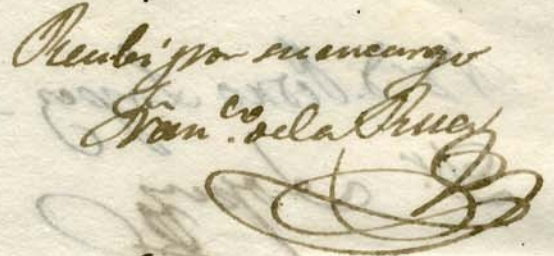 Recibi por su encargo
Fran.co de la Rua